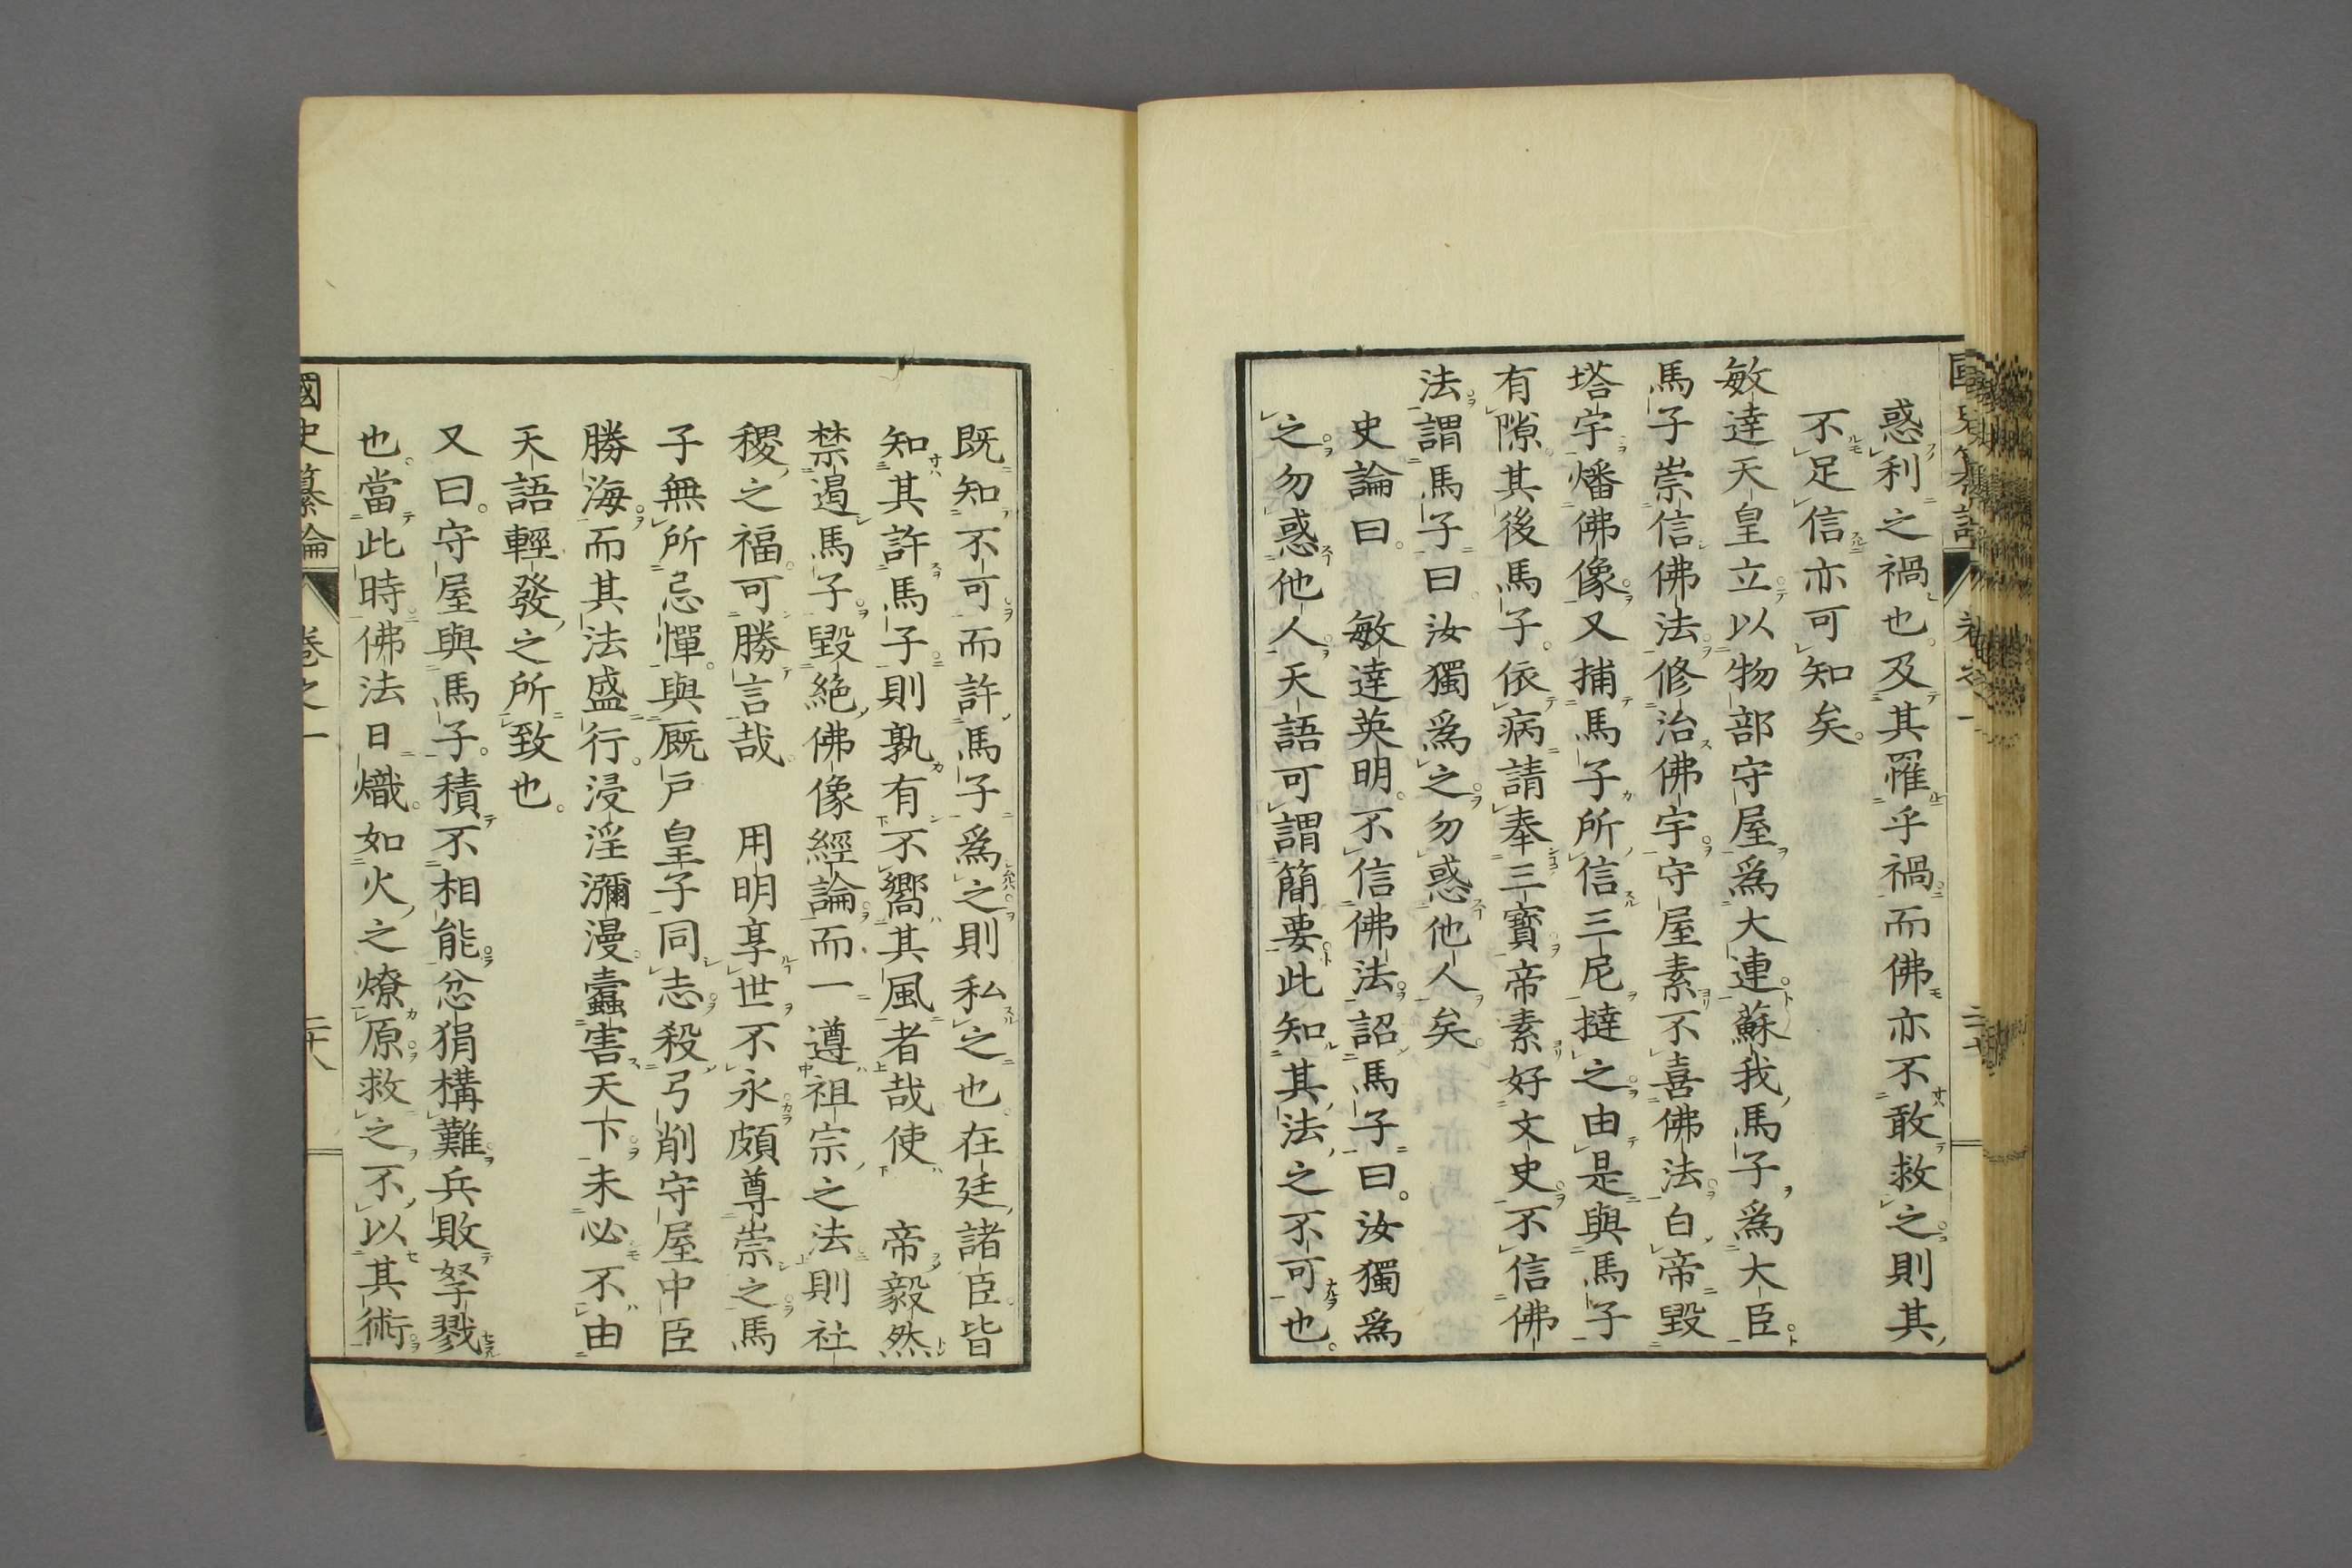 惑利之禍也。及其罹乎禍而佛亦不敢救之則其
不足信亦可知矣。
敏達天皇立以物部守屋爲大連。蘇我馬子爲大臣。
馬子崇信佛法。修治佛宇。守屋素不喜佛法。白帝毀
塔宇燔佛像。又捕馬子所信三尼撻之。由是與馬子
有隙。其後馬子。依病請奉三寶。帝素好文史。不信佛
法。謂馬子曰。汝獨爲之。勿惑他人矣。
史論曰。 敏達英明。不信佛法。詔馬子曰。汝獨爲
之。勿惑他人。天語可謂簡要。此知其法之不可也。
國史纂論 卷之一
既知不可而許馬子爲之。則私之也。在廷諸臣。皆
知其許馬子。則孰有不嚮其風者哉。使 帝毅然
禁遏馬子。毀絶佛像經論。而一遵祖宗之法。則社
稷之福。可勝言哉。 用明享世不永。頗尊崇之。馬
子無所忌憚。與厩戸皇子同志。殺弓削守屋中臣
勝海。而其法盛行。浸淫瀰漫。蠧害天下。未必不由
天語輕發之所致也。
又曰。守屋與馬子。積不相能。忿狷構難。兵敗孥戮
也。當此時。佛法日熾。如火之燎原。救之不以其術。
國史纂論 卷之一 二十八